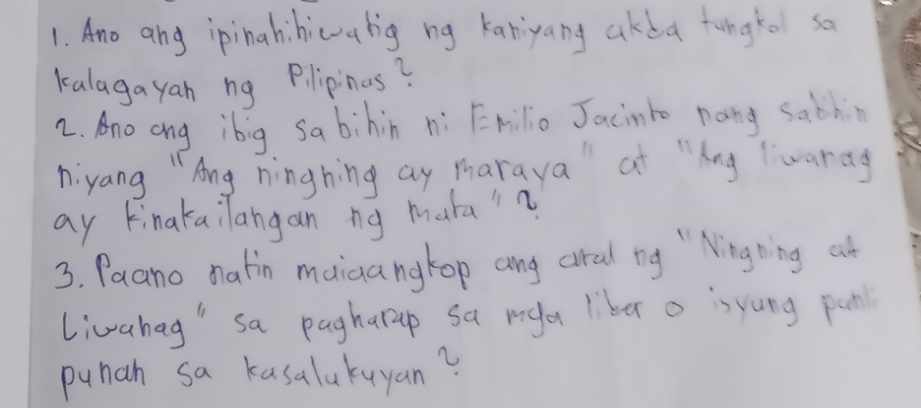 1. Ano ang ipinahihiwatig ng kaniyang akda tungkol sa
kalagayan ng Pilipinas?
2. Ano ang ibig sabihin ni Emilio Jacinto nang sabihin
niyang "Ang ningning ay maraya" at "Ang liwanag
ay kinakailangan ng mata"?
3. Paano natin maiaangkop ang aral ng "Ningning at
Liwanag" sa pagharap sa mga liber o isyung panli
punan sa kasalukuyan?